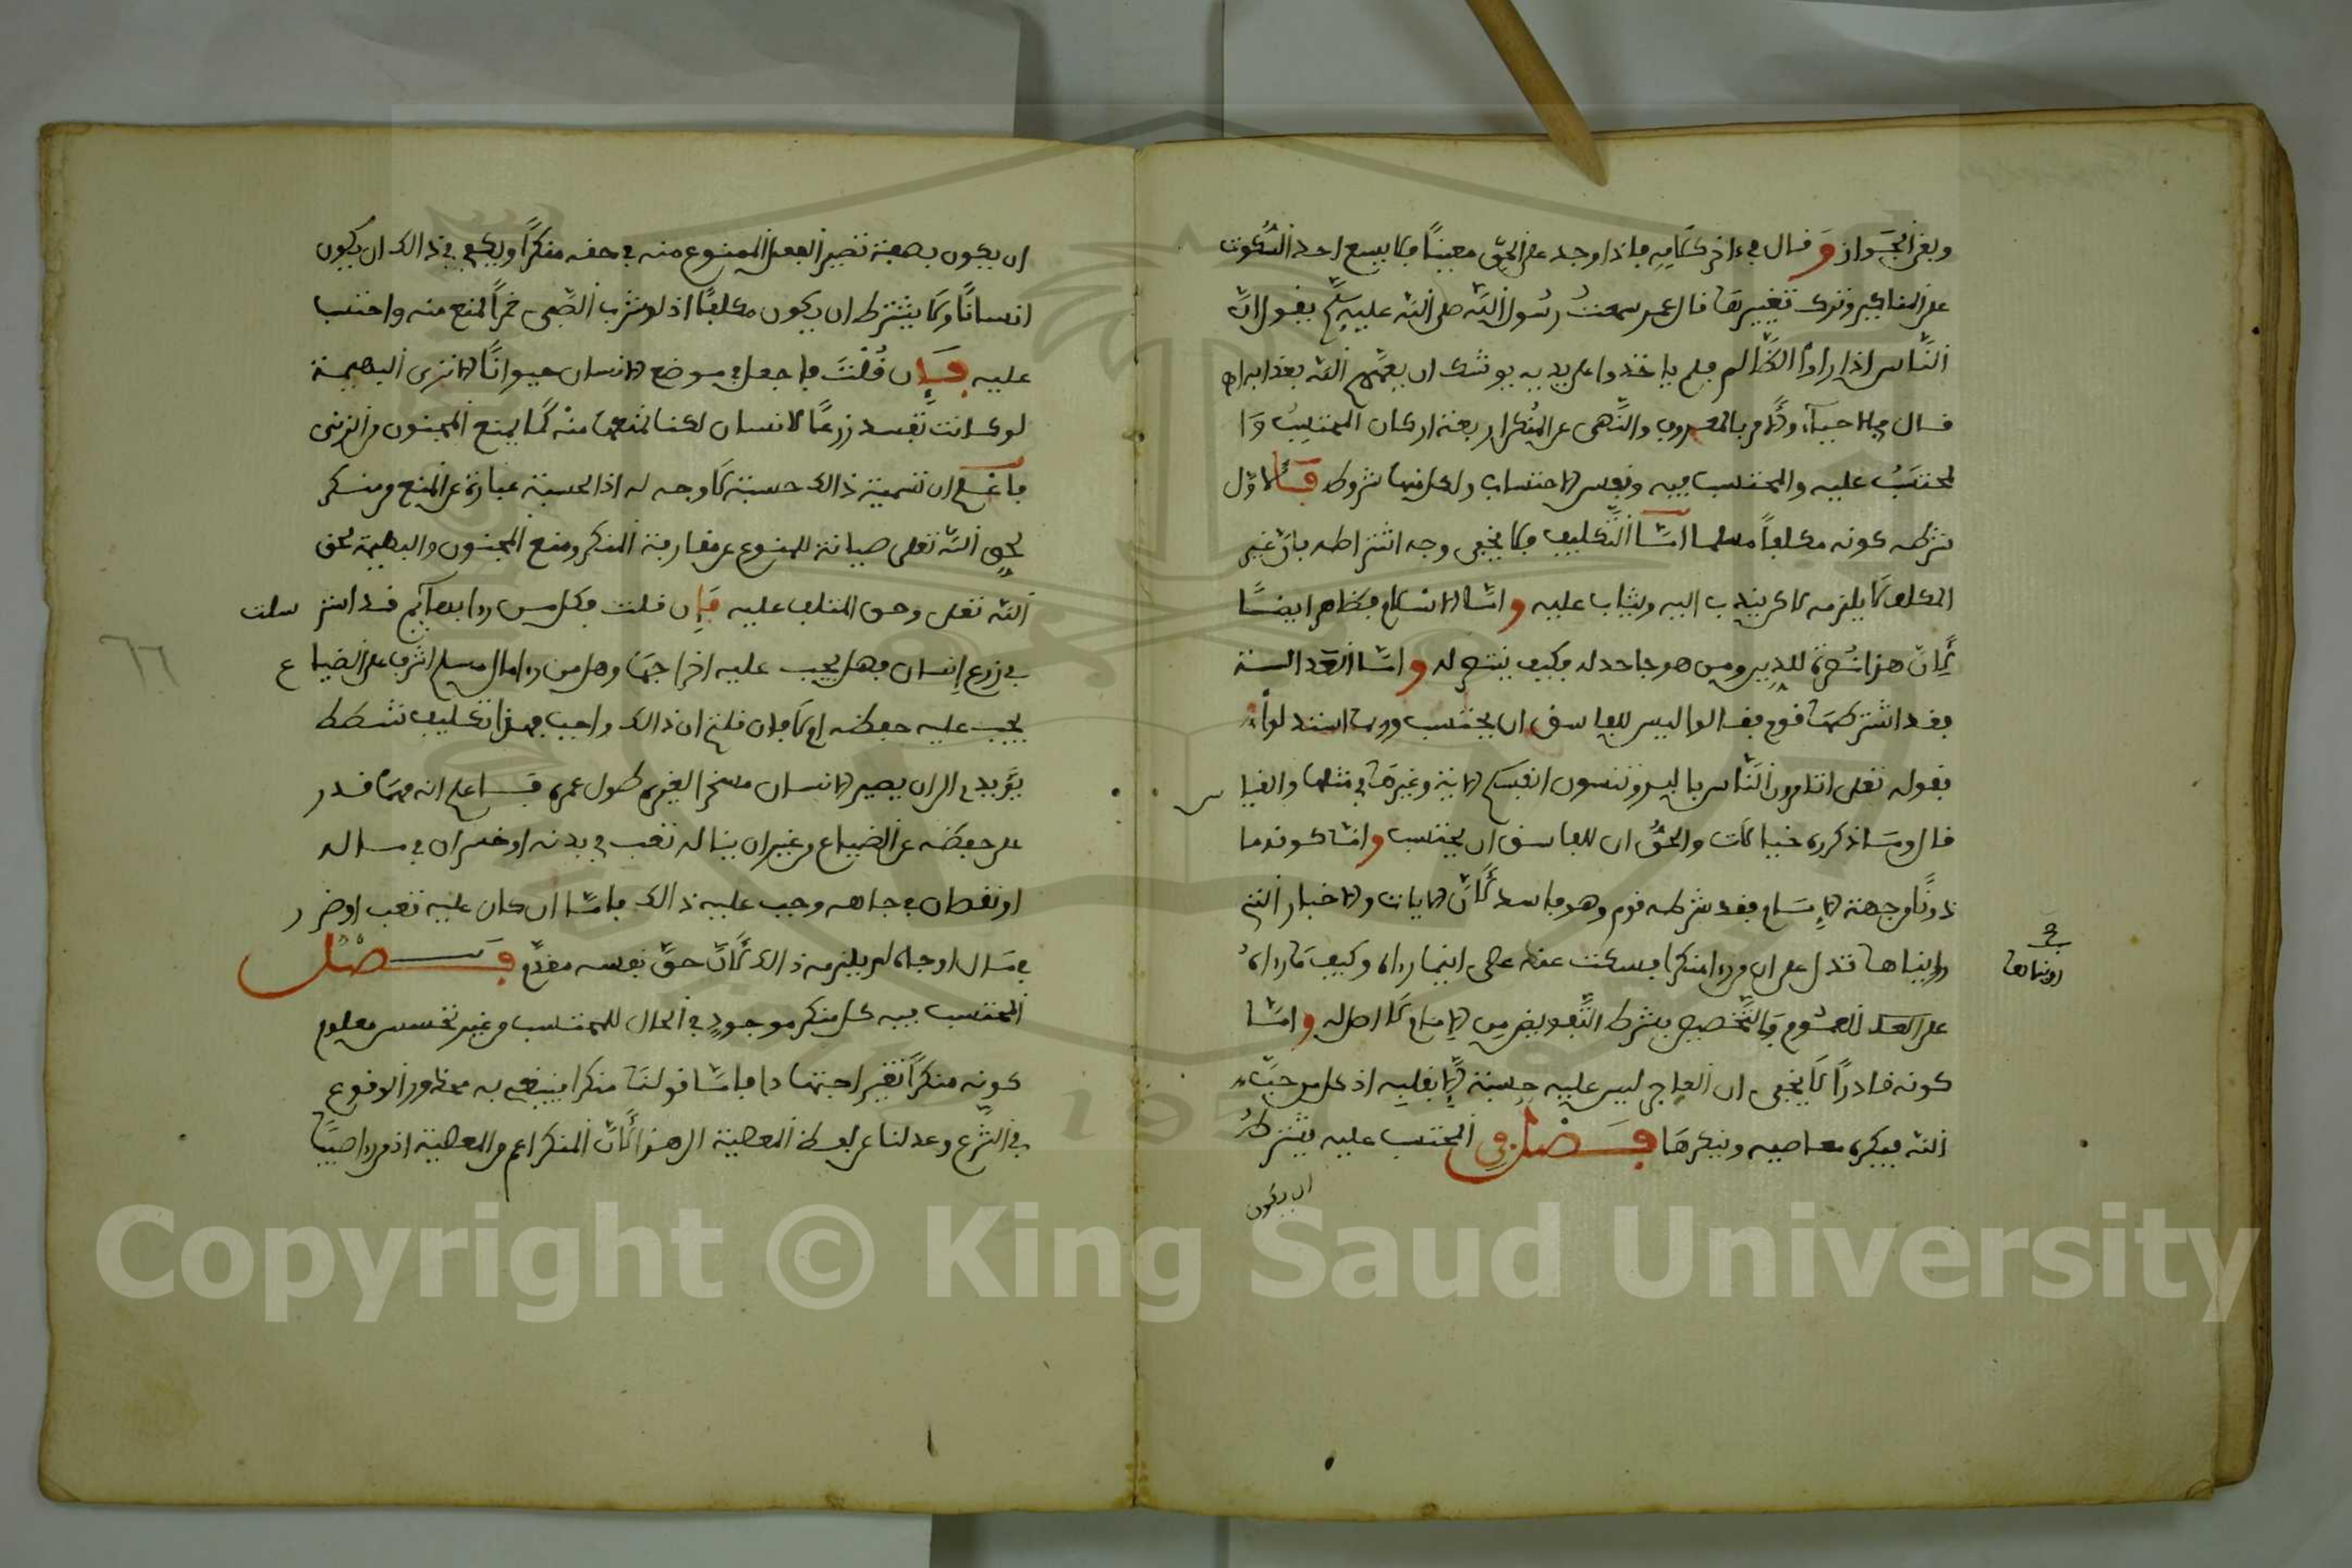 وبقي الجواز وقال في ءاخر كلامه فاذا وجد على الحق معينا فلا يسع احد السكوت
على المناكير وترك تغييرها قال عمر سمعت رسول الله صلى الله عليه وسلم يقول ان
الناس اذا راوا الظالم فلم ياخذوا على يديه يوشك ان يعمهم الله بعذاب
قال في الاحياء والامر بالمعروف والنهي عن المنكر اربعة اركان المحتسب وا
لمحتسب عليه والمحتسب فيه ونفس الاحتساب ولكل منها شروط فالاول
شرطه كونه مكلفا مسلما اما التكليف فلا يخفى وجه اشتراطه بان غير
المكلف لا يلزمه لاكن يندب اليه ويثاب عليه واما الاسلام فظاهر ايضا
لان هذا نصرة للدين ومن هو جاحد له فكيف ينتصر له واما العدالة
فقد اشترطها قوم فقالوا ليس للفاسق ان يحتسب وربما استدلوا
بقوله تعلى اتامرون الناس بالبر وتنسون انفسكم الاية وغيرها في مثلها والقيا س
قال وما ذكروه خيالات والحق ان للفاسق ان يحتسب واما كونه ما
ذونا من جهة الامام فقد شرطه قوم وهو فاسد لان الايات والاخبار التي
رويناها تدل على ان من راى منكرا فسكت عنه عصى اينما راه وكيف ما راه
رويناها
على العموم فالتخصيص بشرط التفويض من الامام لا اصل له واما
كونه قادرا لا يخفى ان العاجز ليس عليه حسبة الا بقلبه اذ كل من حب
الله يكره معاصيه وينكرها فصل في المحتسب عليه يشترط
ان يكون
ان يكون بصفة تصير الفعل الممنوع منه في حقه منكرا ويكفي في ذالك ان يكون
انسانا ولا يشترط ان يكون مكلفا اذ لو شرب الصبي خمرا لمنع منه واحتسب
عليه فإن قلت فما جعل في موضع الانسان حيوانا الا ترى البهيمة
لو كانت تفسد زرعا لانسان لكنا نمنعها منه كما يمنع المجنون من الزنى
فاعلم ان تسمية ذالك حسبة لا وجه له اذ الحسبة عبارة عن المنع من منكر
لحق الله تعلى صيانة للممنوع عن مقارفة المنكر ومنع المجنون والبهيمة لحق
الله تعلى وحق المتلف عليه فإن قلت فكل من راى بهايم قد استر سلت
في زرع انسان فهل يجب عليه اخراجها وهل من راى مال مسلم اشرف على الضيا ع
يجب عليه حفظه ام لا فان قلتم ان ذالك واجب فهذا تكليف شطط
يؤدي الى ان يصير الانسان مسخرا لغيره طول عمره فاعلم انه مهما قدر
على حفظه عن الضياع من غير ان يناله تعب في بدنه او خسران في ماله
او نقصان في جاهه وجب عليه ذالك فاما ان كان عليه تعب او ضر ر
في مال او جاه لم يلزمه ذالك لان حق نفسه مقدم فصل
المحتسب فيه كل منكر موجود في الحال للمحتسب من غير تجسس معلوم
كونه منكرا بغير اجتهاد فاما قولنا منكرا فينبغي به محظور الوقوع
في الشرع وعدلنا عن لفظ المعصية الى هذا لان المنكر اعم من المعصية اذ من راى صبيا
٦٦
Copyright © King Saud University
1957